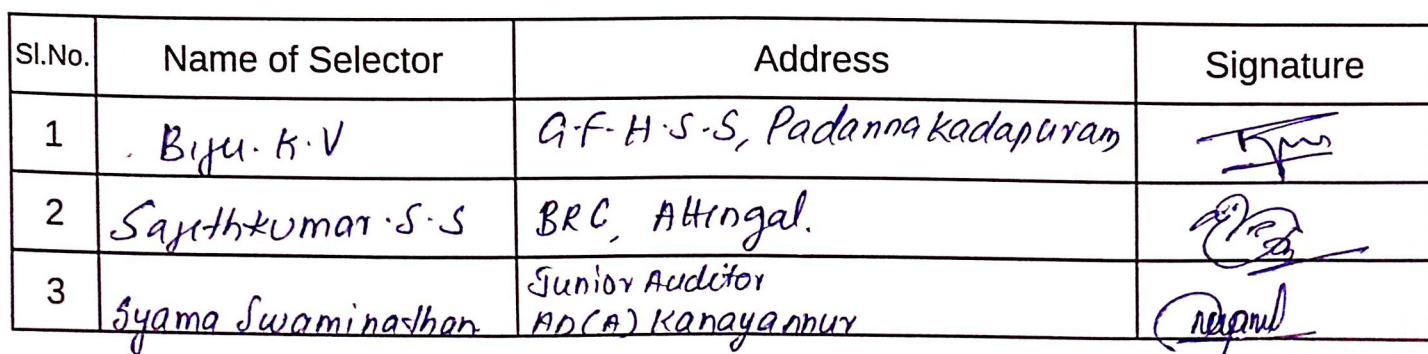 Sl.No. Name of Selector Address Signature
1 Biju. K. V G.F.H.S.S, Padanna kadapuram
2 Sajethkumar.S.S BRC, Attingal.
3 Syama Swaminadhan Junior Auditor
AD(A) Kanayannur